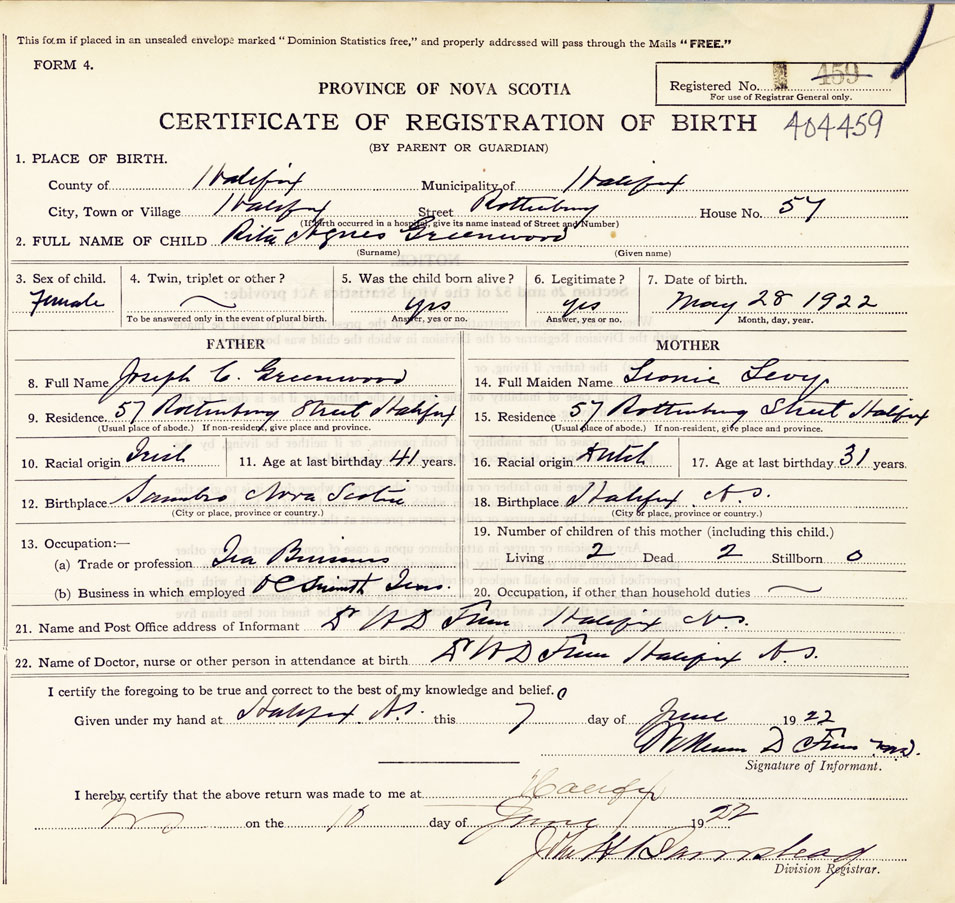 This form if placed in an unsealed envelope marked "Dominion Statistics free," and properly addressed will pass through the Mails "FREE."
FORM 4.
Registered No. 459
For use of Registrar General only.
PROVINCE OF NOVA SCOTIA
CERTIFICATE OF REGISTRATION OF BIRTH 404459
(BY PARENT OR GUARDIAN)
1. PLACE OF BIRTH.
County of Halifax Municipality of Halifax
City, Town or Village Halifax Street Rottenburg House No. 57
(If birth occurred in a hospital, give its name instead of Street and Number)
2. FULL NAME OF CHILD Rita Agnes Greenwood
(Surname) (Given name)
3. Sex of child. 4. Twin, triplet or other? 5. Was the child born alive? 6. Legitimate? 7. Date of birth.
Female yes yes May 28 1922
To be answered only in the event of plural birth. Answer, yes or no. Answer, yes or no. Month, day, year.
FATHER MOTHER
8. Full Name Joseph C. Greenwood 14. Full Maiden Name Leonie Levy
9. Residence. 57 Rottenburg Street Halifax 15. Residence: 57 Rottenburg Street Halifax
(Usual place of abode.) If non-resident, give place and province. (Usual place of abode.) If non-resident, give place and province.
10. Racial origin Irish 11. Age at last birthday 41 years. 16. Racial origin Dutch 17. Age at last birthday 31 years.
12. Birthplace Sambro Nova Scotia 18. Birthplace Halifax N.S.
(City or place, province or country.) (City or place, province or country.)
13. Occupation:— 19. Number of children of this mother (including this child.)
(a) Trade or profession Tea Business Living 2 Dead 2 Stillborn 0
(b) Business in which employed Smith 20. Occupation, if other than household duties
21. Name and Post Office address of Informant Dr W D Halifax N.S.
22. Name of Doctor, nurse or other person in attendance at birth Dr W D Halifax N.S.
I certify the foregoing to be true and correct to the best of my knowledge and belief.
Given under my hand at Halifax N.S. this 7 day of June 1922
William D
Signature of Informant.
I hereby certify that the above return was made to me at Halifax
NS on the 10 day of June 1922
John H Barnstead
Division Registrar.